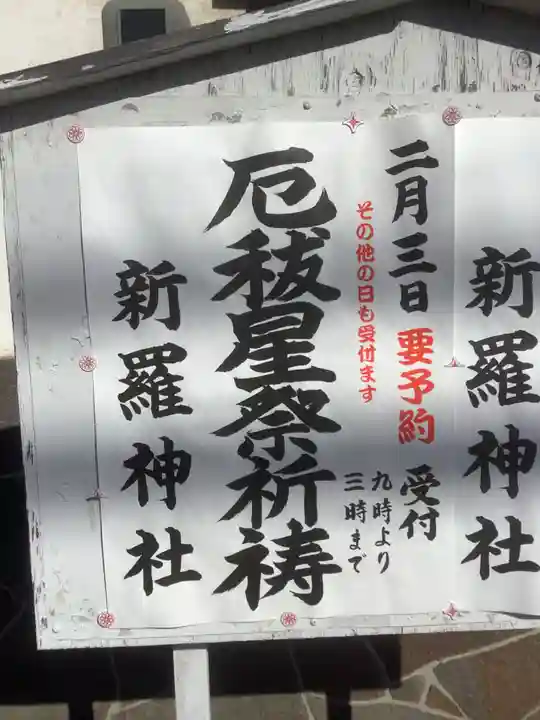 新羅神社
二月三日 要予約 受付
九時より
三時まで
その他の日も受付ます
厄祓星祭祈祷
新羅神社